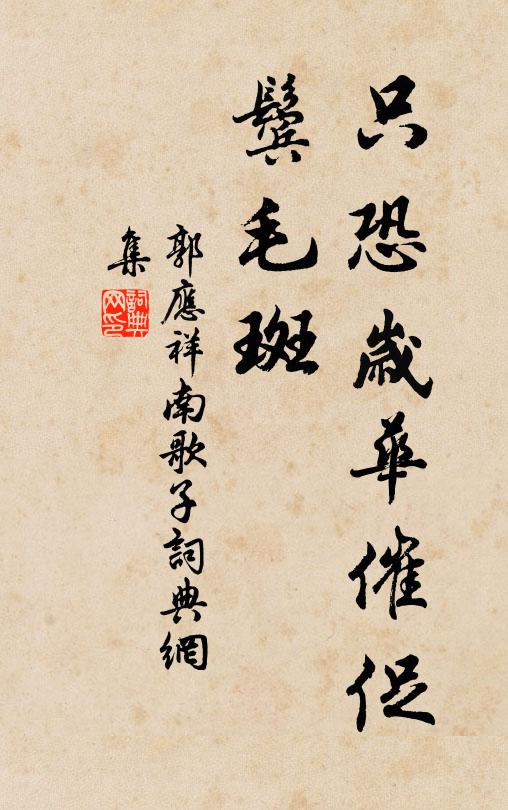 只恐歲華催促
鬓毛斑
郭應祥南歌子詞典網
集
詞典
网印